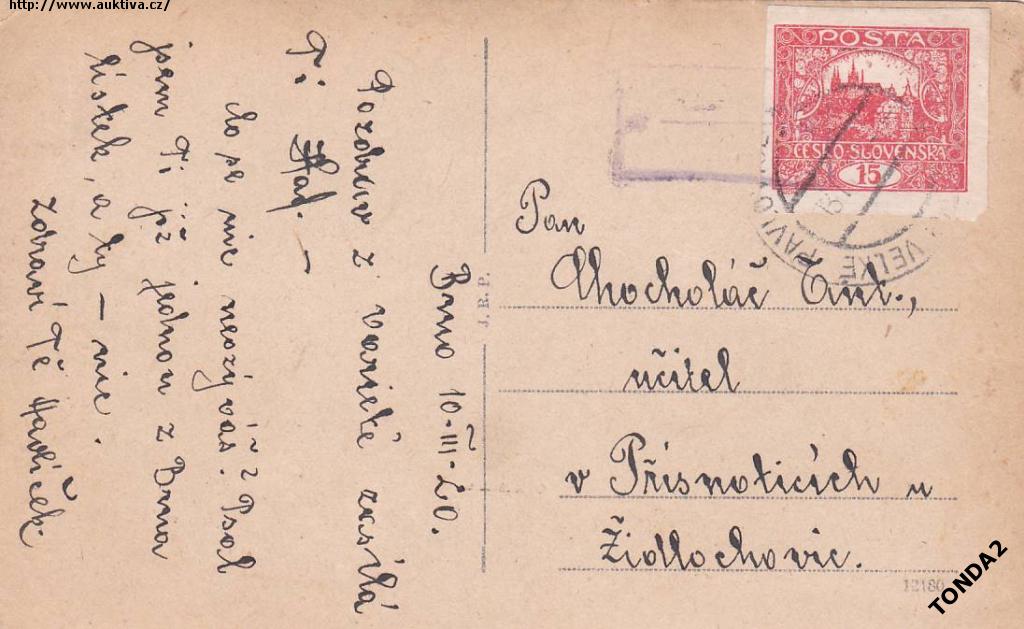 http://www.auktiva.cz/
POSTA
ČESKO-SLOVENSKÁ
15
VELKÉ PAVLO
Brno 10-III-20.
z varieté zasílá
Ti
Co pa nic neozýváš? Psal
jsem Ti již jednou z Brna
lístek, a ty – nic.
Zdraví Tě Havlíček.
J. R. P.
Pan
Chocholáč Ant.,
učitel
v Přísnoticích u
Židlochovic.
12180
TONDA2